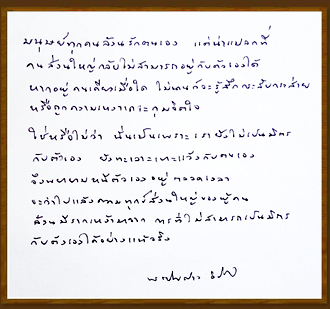 มนุษย์ทุกคนล้วนรักตนเอง แต่น่าแปลกที่
คนส่วนใหญ่กลับไม่สามารถอยู่กับตัวเองได้
หากอยู่คนเดียวเมื่อใด ไม่นานก็จะรู้สึกกระสับกระส่าย
หรือถูกความเหงาเกาะกุมจิตใจ
ใช่หรือไม่ว่า นั่นเป็นเพราะเรายังไม่เป็นมิตร
กับตัวเอง ยังทะเลาะเบาะแว้งกับตนเอง
จึงพยายามหนีตัวเองอยู่ตลอดเวลา
จะว่าไปแล้วความทุกข์ส่วนใหญ่ของผู้คน
ล้วนมีรากเหง้ามาจาก การที่ไม่สามารถเป็นมิตร
กับตัวเองได้อย่างแท้จริง